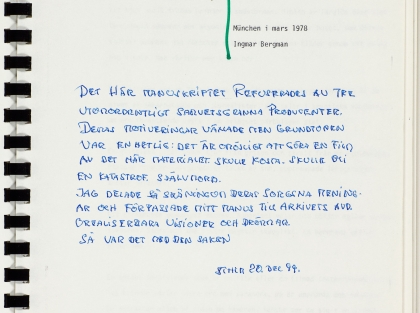 München i mars 1978
Ingmar Bergman
DET HÄR MANUSKRIPTET REFUSERADES AV TRE
UTOMORDENTLIGT SAKVETSGRANNA PRODUCENTER.
DERAS MOTIVERINGAR MEN GRUNDTONEN
VAR ENHETLIG: DET ÄR OMÖJLIGT ATT GÖRA EN FILM
AV DET HÄR MATERIALET. SKULLE KOSTA. SKULLE BLI
EN KATASTROF. SJÄLVMORD.
JAG DELADE SÅ DERAS SORGSNA MENING-
AR OCH FÖRPASSADE MITT MANUS TILL ARKIVETS AVD
OREALISERBARA VISIONER OCH DRÖMMAR.
SÅ VAR DET MED DEN SAKEN
20 DEC 94.